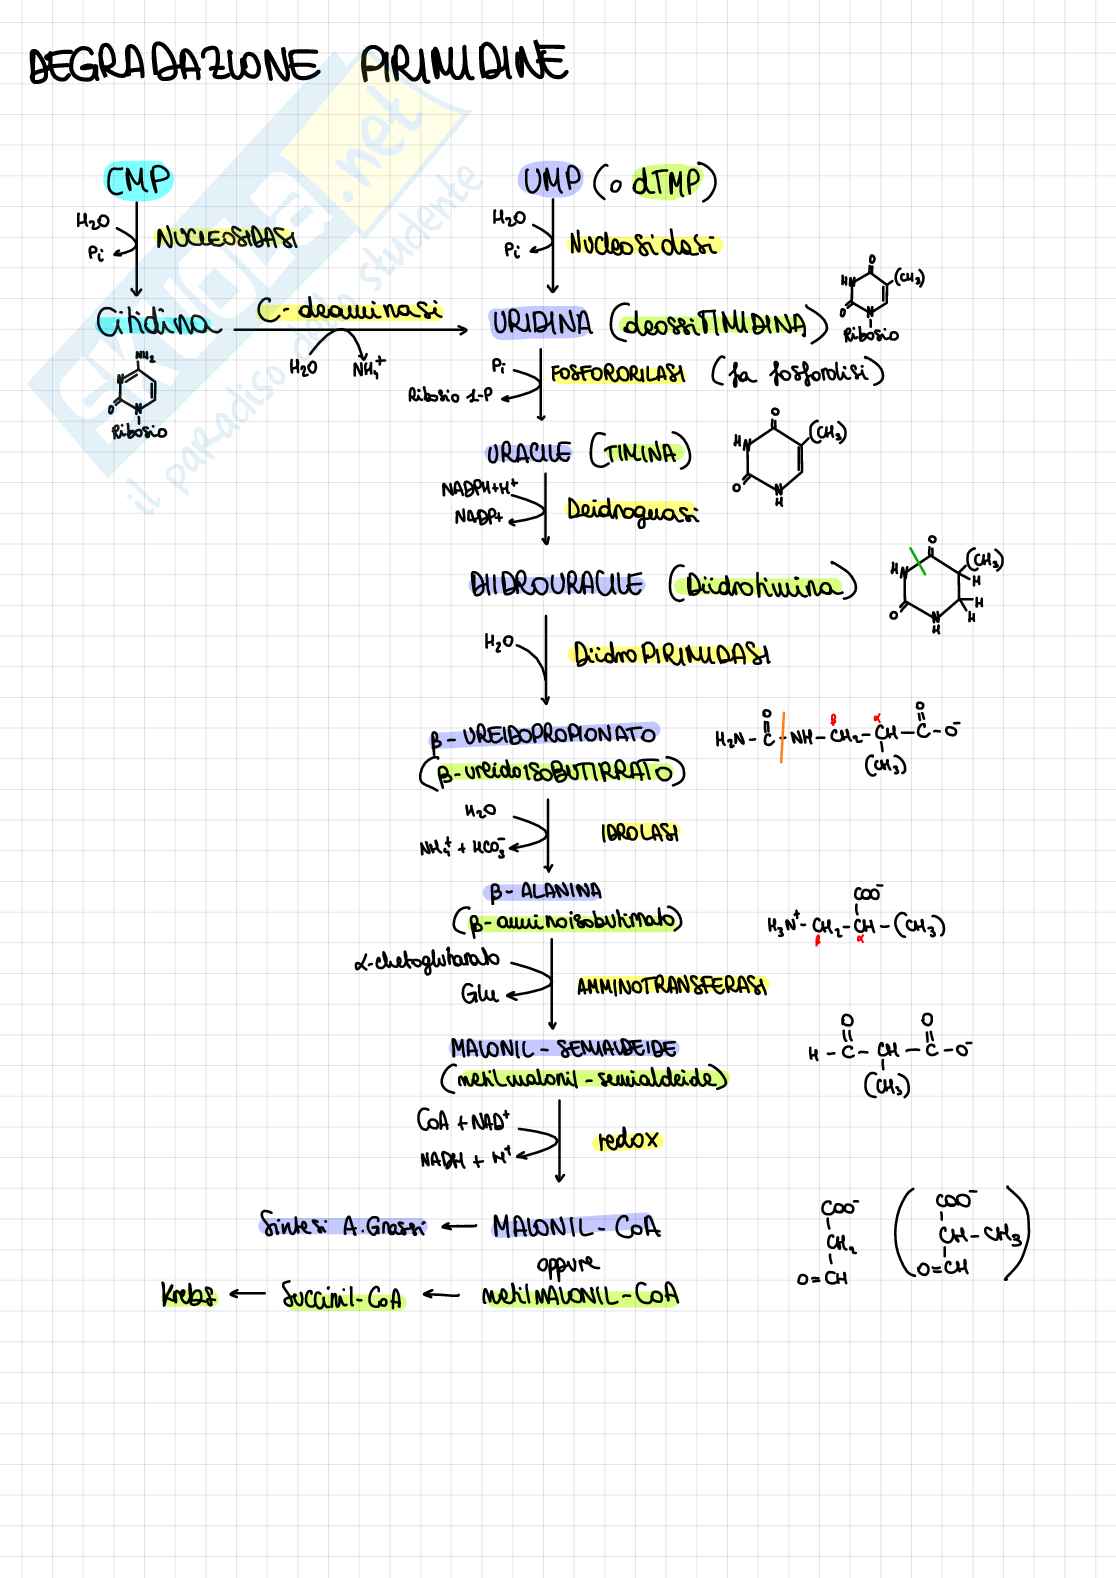 DEGRADAZIONE PIRIMIDINE
CMP
UMP (o dTMP)
H₂O
Pi
NUCLEOSIDASI
H₂O
Pi
Nucleosidasi
Citidina
C-deaminasi
H₂O
NH₄⁺
URIDINA (deossiTIMIDINA)
O
HN
(CH₃)
O
N
Ribosio
NH₂
N
O
N
Ribosio
Pi
Ribosio 1-P
FOSFORORILASI (fa fosforolisi)
URACILE (TIMINA)
O
HN
(CH₃)
O
N
H
NADPH+H⁺
NADP+
Deidrogenasi
DIIDROURACILE (Diidrotimina)
O
HN
(CH₃)
H
H
H
O
N
H
H₂O
DiidroPIRIMIDASI
β-UREIDOPROPIONATO
(β-ureidoISOBUTIRRATO)
O β α O
H₂N-C-NH-CH₂-CH-C-O⁻
(CH₃)
H₂O
NH₄⁺ + HCO₃⁻
IDROLASI
β-ALANINA
(β-amminoisobutirrato)
COO⁻
H₃N⁺-CH₂-CH-(CH₃)
β α
α-chetoglutarato
Glu
AMMINOTRANSFERASI
MALONIL-SEMIALDEIDE
(metilmalonil-semialdeide)
O O
H-C-CH-C-O⁻
(CH₃)
CoA + NAD⁺
NADH + H⁺
redox
Sintesi A.Grassi ← MALONIL-CoA
oppure
Krebs ← Succinil-CoA ← metilMALONIL-CoA
COO⁻
CH₂
O=CH
(COO⁻
CH-CH₃
O=CH)
SKUOLA.net
il paradiso dello studente